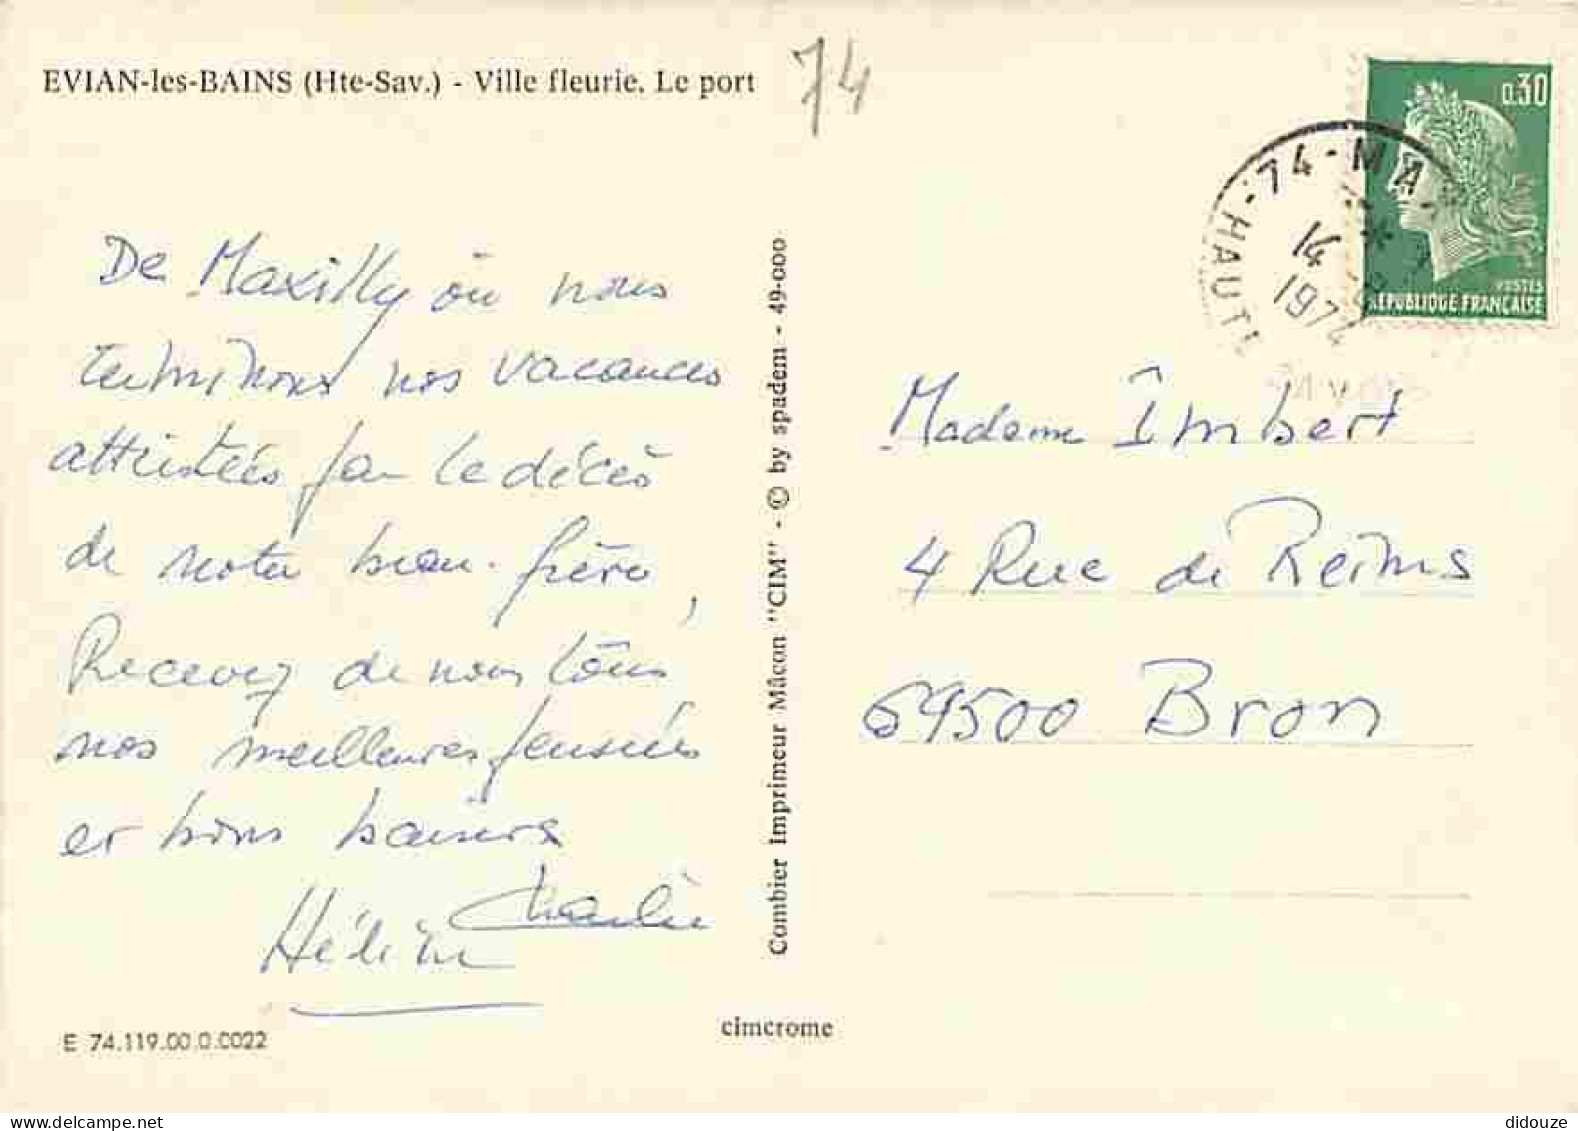 EVIAN-les-BAINS (Hte-Sav.) - Ville fleurie. Le port
74
De Maxilly où nous
terminons nos vacances
attristées par le décès
de notre beau-frère,
Recevez de nous tous
nos meilleures pensées
et bons baisers
Charlie
Hélène
E 74.119.00.0.0022
Combier Imprimeur Mâcon "CIM" - © by spadem - 49-000
cimcrome
0.30
POSTES
REPUBLIQUE FRANÇAISE
74-MAX
14
1974
HAUTE
SAVOIE
Madame Imbert
4 Rue de Reims
69500 Bron
didouze